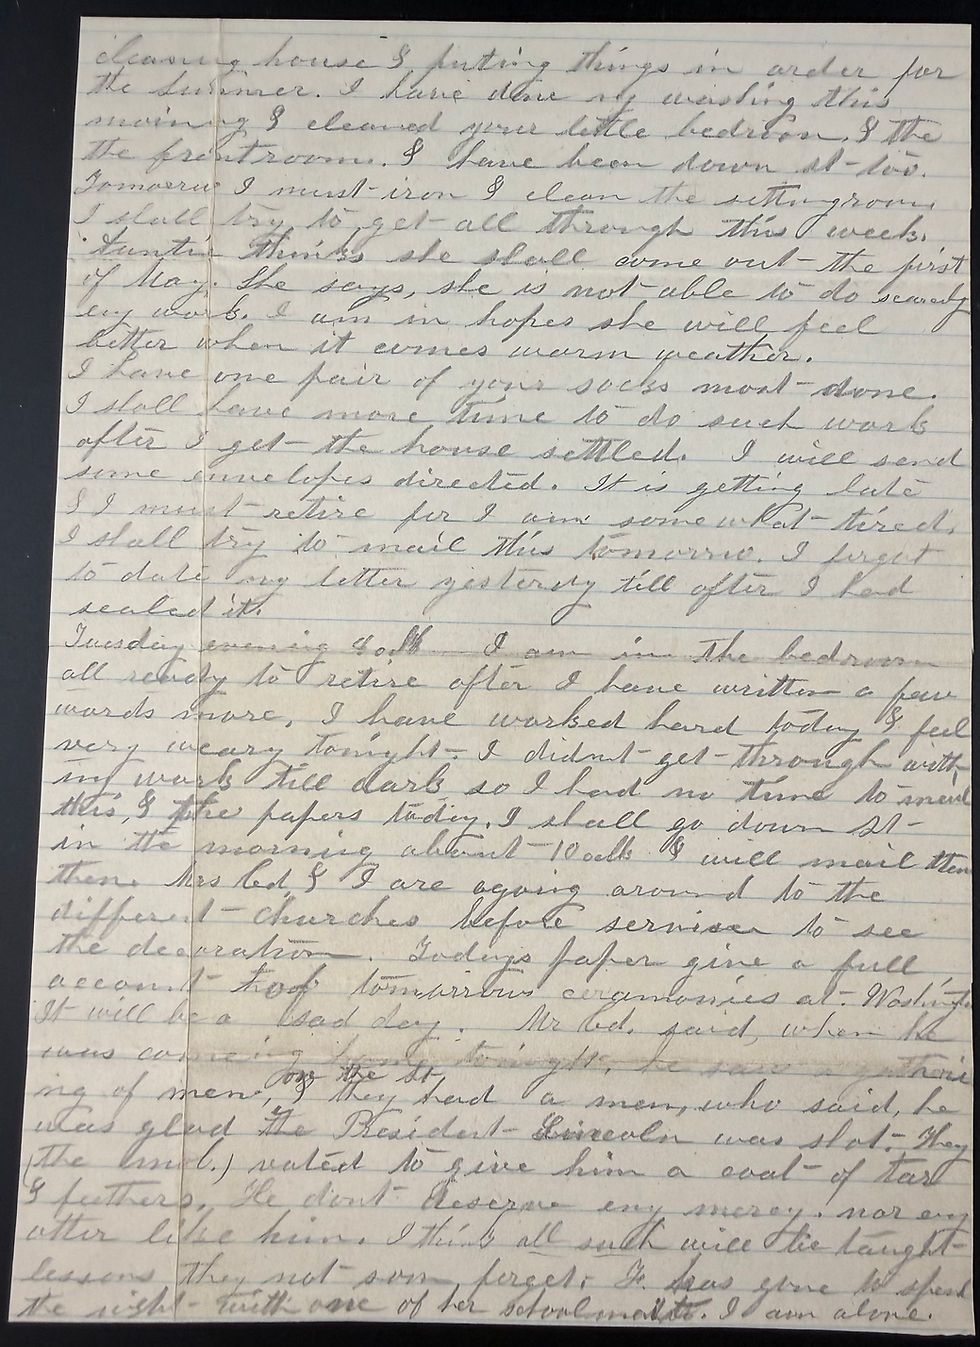 cleaning house & puting things in order for
the summer. I have done my washing this
morning & cleaned your little bedroom, & the
the frontroom. I have been down st- too.
Tomorrow I must iron & clean the sittingroom
I shall try to get all through this week.
Auntie thinks she shall come out the first
of May. She says, she is not able to do scarcely
eny work. I am in hopes she will feel
better when it comes warm weather.
I have one pair of your socks most done.
I shall have more time to do such work
after I get the house settled. I will send
some envelopes directed. It is getting late
& I must retire for I am somewhat tired.
I shall try to mail this tomorrow. I forgot
to date my letter yesterday till after I had
sealed it.
Tuesday evening I am in the bedroom
all ready to retire after I have written a few
words more, I have worked hard today & feel
very weary tonight. I didnt get through with
my work till dark so I had no time to mail
this, & the papers today. I shall go down st-
in the morning about 10 oclk & will mail them
then. Mrs Ed & I are agoing around to the
different churches before service to see
the decoration. Todays paper give a full
account of tomorrows ceramonies at Washington
It will be a sad day. Mr Ed. said, when he
was comeing home tonight, he saw a gather
ing of men, on the St, & they had a man, who said, he
was glad the President Lincoln was shot. They
(the mob.) voted to give him a coat of tar
& feathers. He dont deserve eny mercy. nor eny
other like him. I think all such will be taught
lessons they not soon forget. has gone to spend
the night with one of her schoolmates. I am alone.